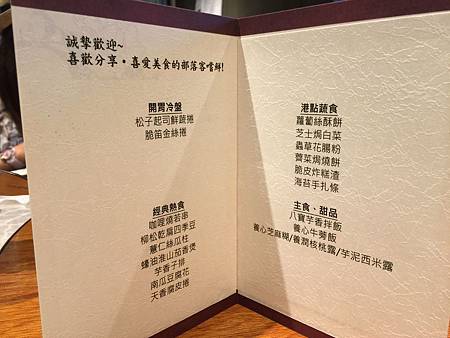 誠摯歡迎~
喜歡分享・喜愛美食的部落客嚐鮮!
開胃冷盤
松子起司鮮蔬捲
脆笛金絲捲
經典熱食
咖哩燒若串
柳松乾扁四季豆
薏仁絲瓜柱
蠔油淮山茄香煲
芋香子排
南瓜豆腐花
天香腐皮捲
港點蔬食
蘿蔔絲酥餅
芝士焗白菜
蟲草花腸粉
薺菜焗燒餅
脆皮炸糕渣
海苔手扎條
主食・甜品
八寶芋香拌飯
養心牛蒡飯
養心芝麻糊/養潤核桃露/芋泥西米露